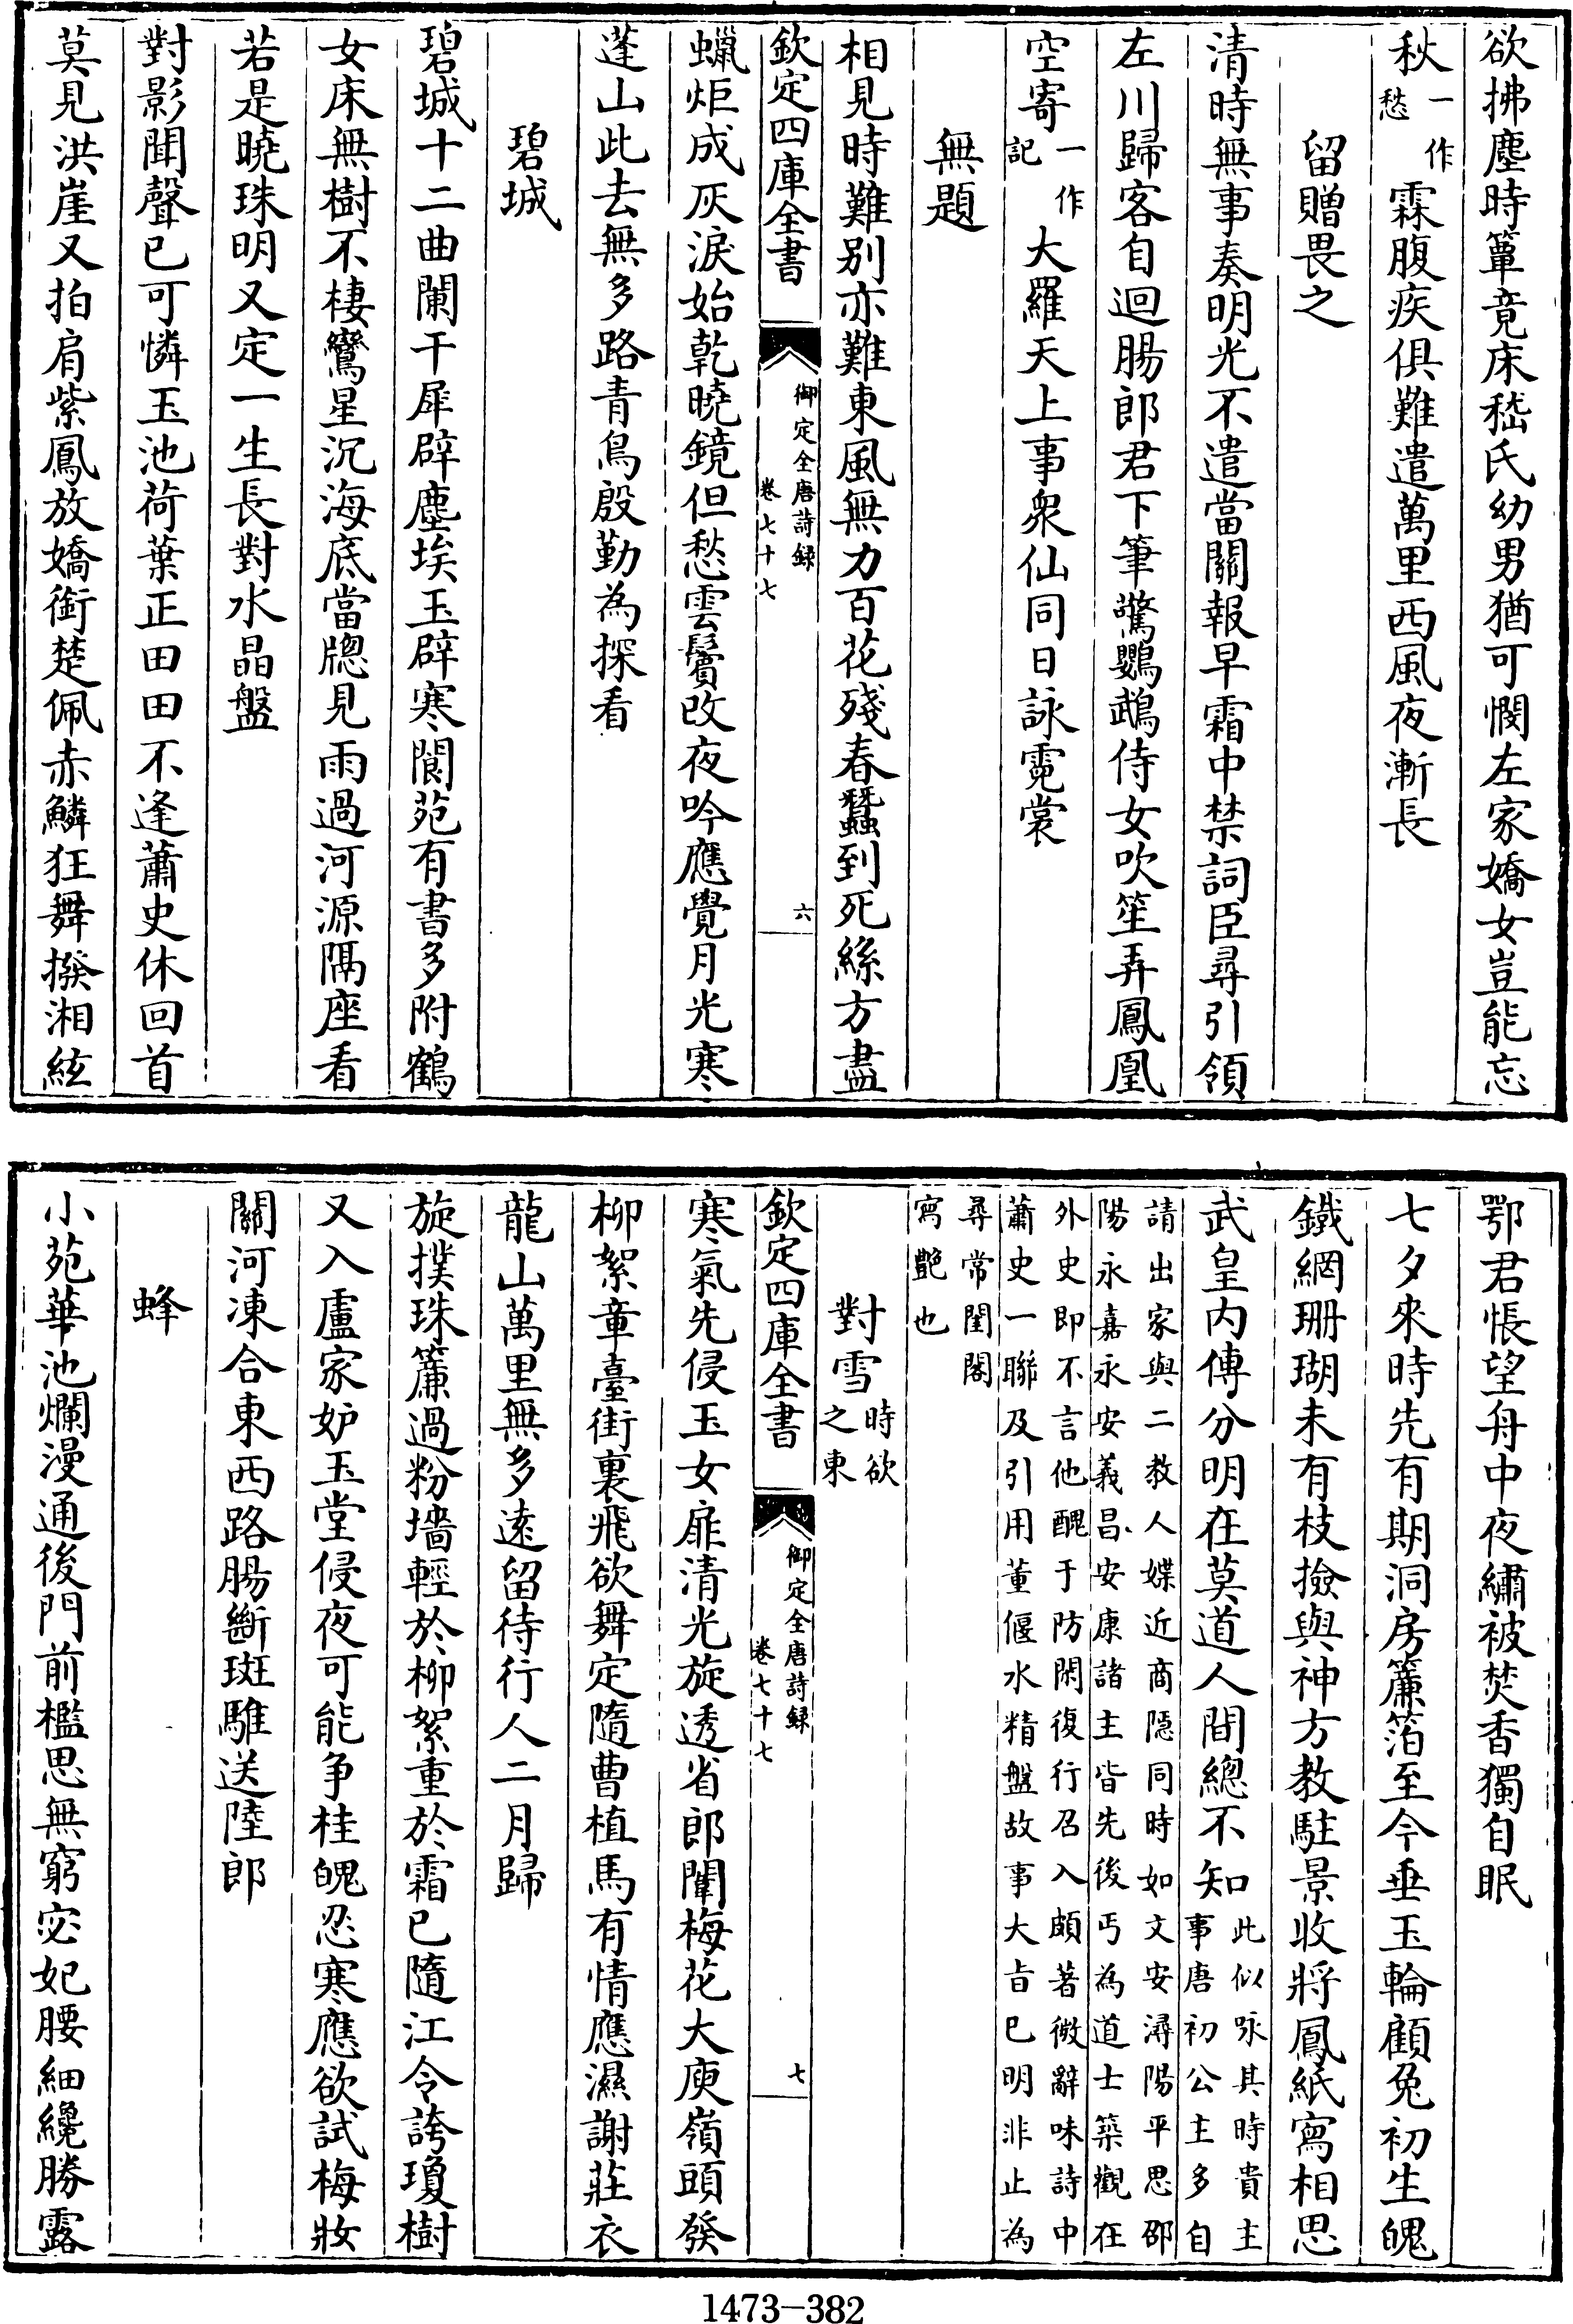 欲拂塵時簟竟床嵇氏幼男猶可憫左家嬌女豈能忘
秋一作愁霖腹疾俱難遣萬里西風夜漸長
留贈畏之
清時無事奏明光不遣當關報早霜中禁詞臣尋引領
左川歸客自迴腸郎君下筆驚鸚鵡侍女吹笙弄鳳凰
空寄一作記大羅天上事衆仙同日詠霓裳
無題
相見時難别亦難東風無力百花殘春蠶到死絲方盡
欽定四庫全書
御定全唐詩録
卷七十七
六
蠟炬成灰淚始乾曉鏡但愁雲鬢改夜吟應覺月光寒
蓬山此去無多路青鳥殷勤為探看
碧城
碧城十二曲闌干犀辟塵埃玉辟寒閬苑有書多附鶴
女床無樹不棲鸞星沉海底當牕見雨過河源隔座看
若是曉珠明又定一生長對水晶盤
對影聞聲已可憐玉池荷葉正田田不逢蕭史休回首
莫見洪崖又拍肩紫鳳放嬌銜楚佩赤鱗狂舞撥湘絃
鄂君悵望舟中夜繡被焚香獨自眠
七夕來時先有期洞房簾箔至今垂玉輪顧兔初生魄
鐵網珊瑚未有枝撿與神方教駐景收將鳳紙寫相思
武皇内傳分明在莫道人間總不知此似咏其時貴主
事唐初公主多自
請出家與二教人媟近商隱同時如文安潯陽平思邵
陽永嘉永安義昌安康諸主皆先後丐為道士築觀在
外史即不言他醜于防閑復行召入頗著微辭味詩中
蕭史一聯及引用董偃水精盤故事大旨已明非止為
尋常閨閣
寫艷也
對雪時欲之東
欽定四庫全書
御定全唐詩録
卷七十七
七
寒氣先侵玉女扉清光旋透省郎闈梅花大庾嶺頭發
柳絮章臺街裏飛欲舞定隨曹植馬有情應濕謝莊衣
龍山萬里無多遠留待行人二月歸
旋撲珠簾過粉墻輕於柳絮重於霜已隨江令誇瓊樹
又入盧家妒玉堂侵夜可能争桂魄忍寒應欲試梅妝
關河凍合東西路腸斷斑騅送陸郎
蜂
小苑華池爛漫通後門前檻思無窮宓妃腰細纔勝露
1473-382